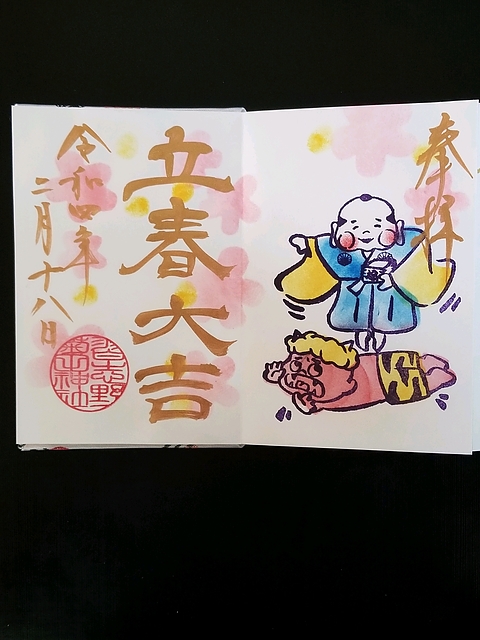 奉拝
立春大吉
令和四年
二月十八日